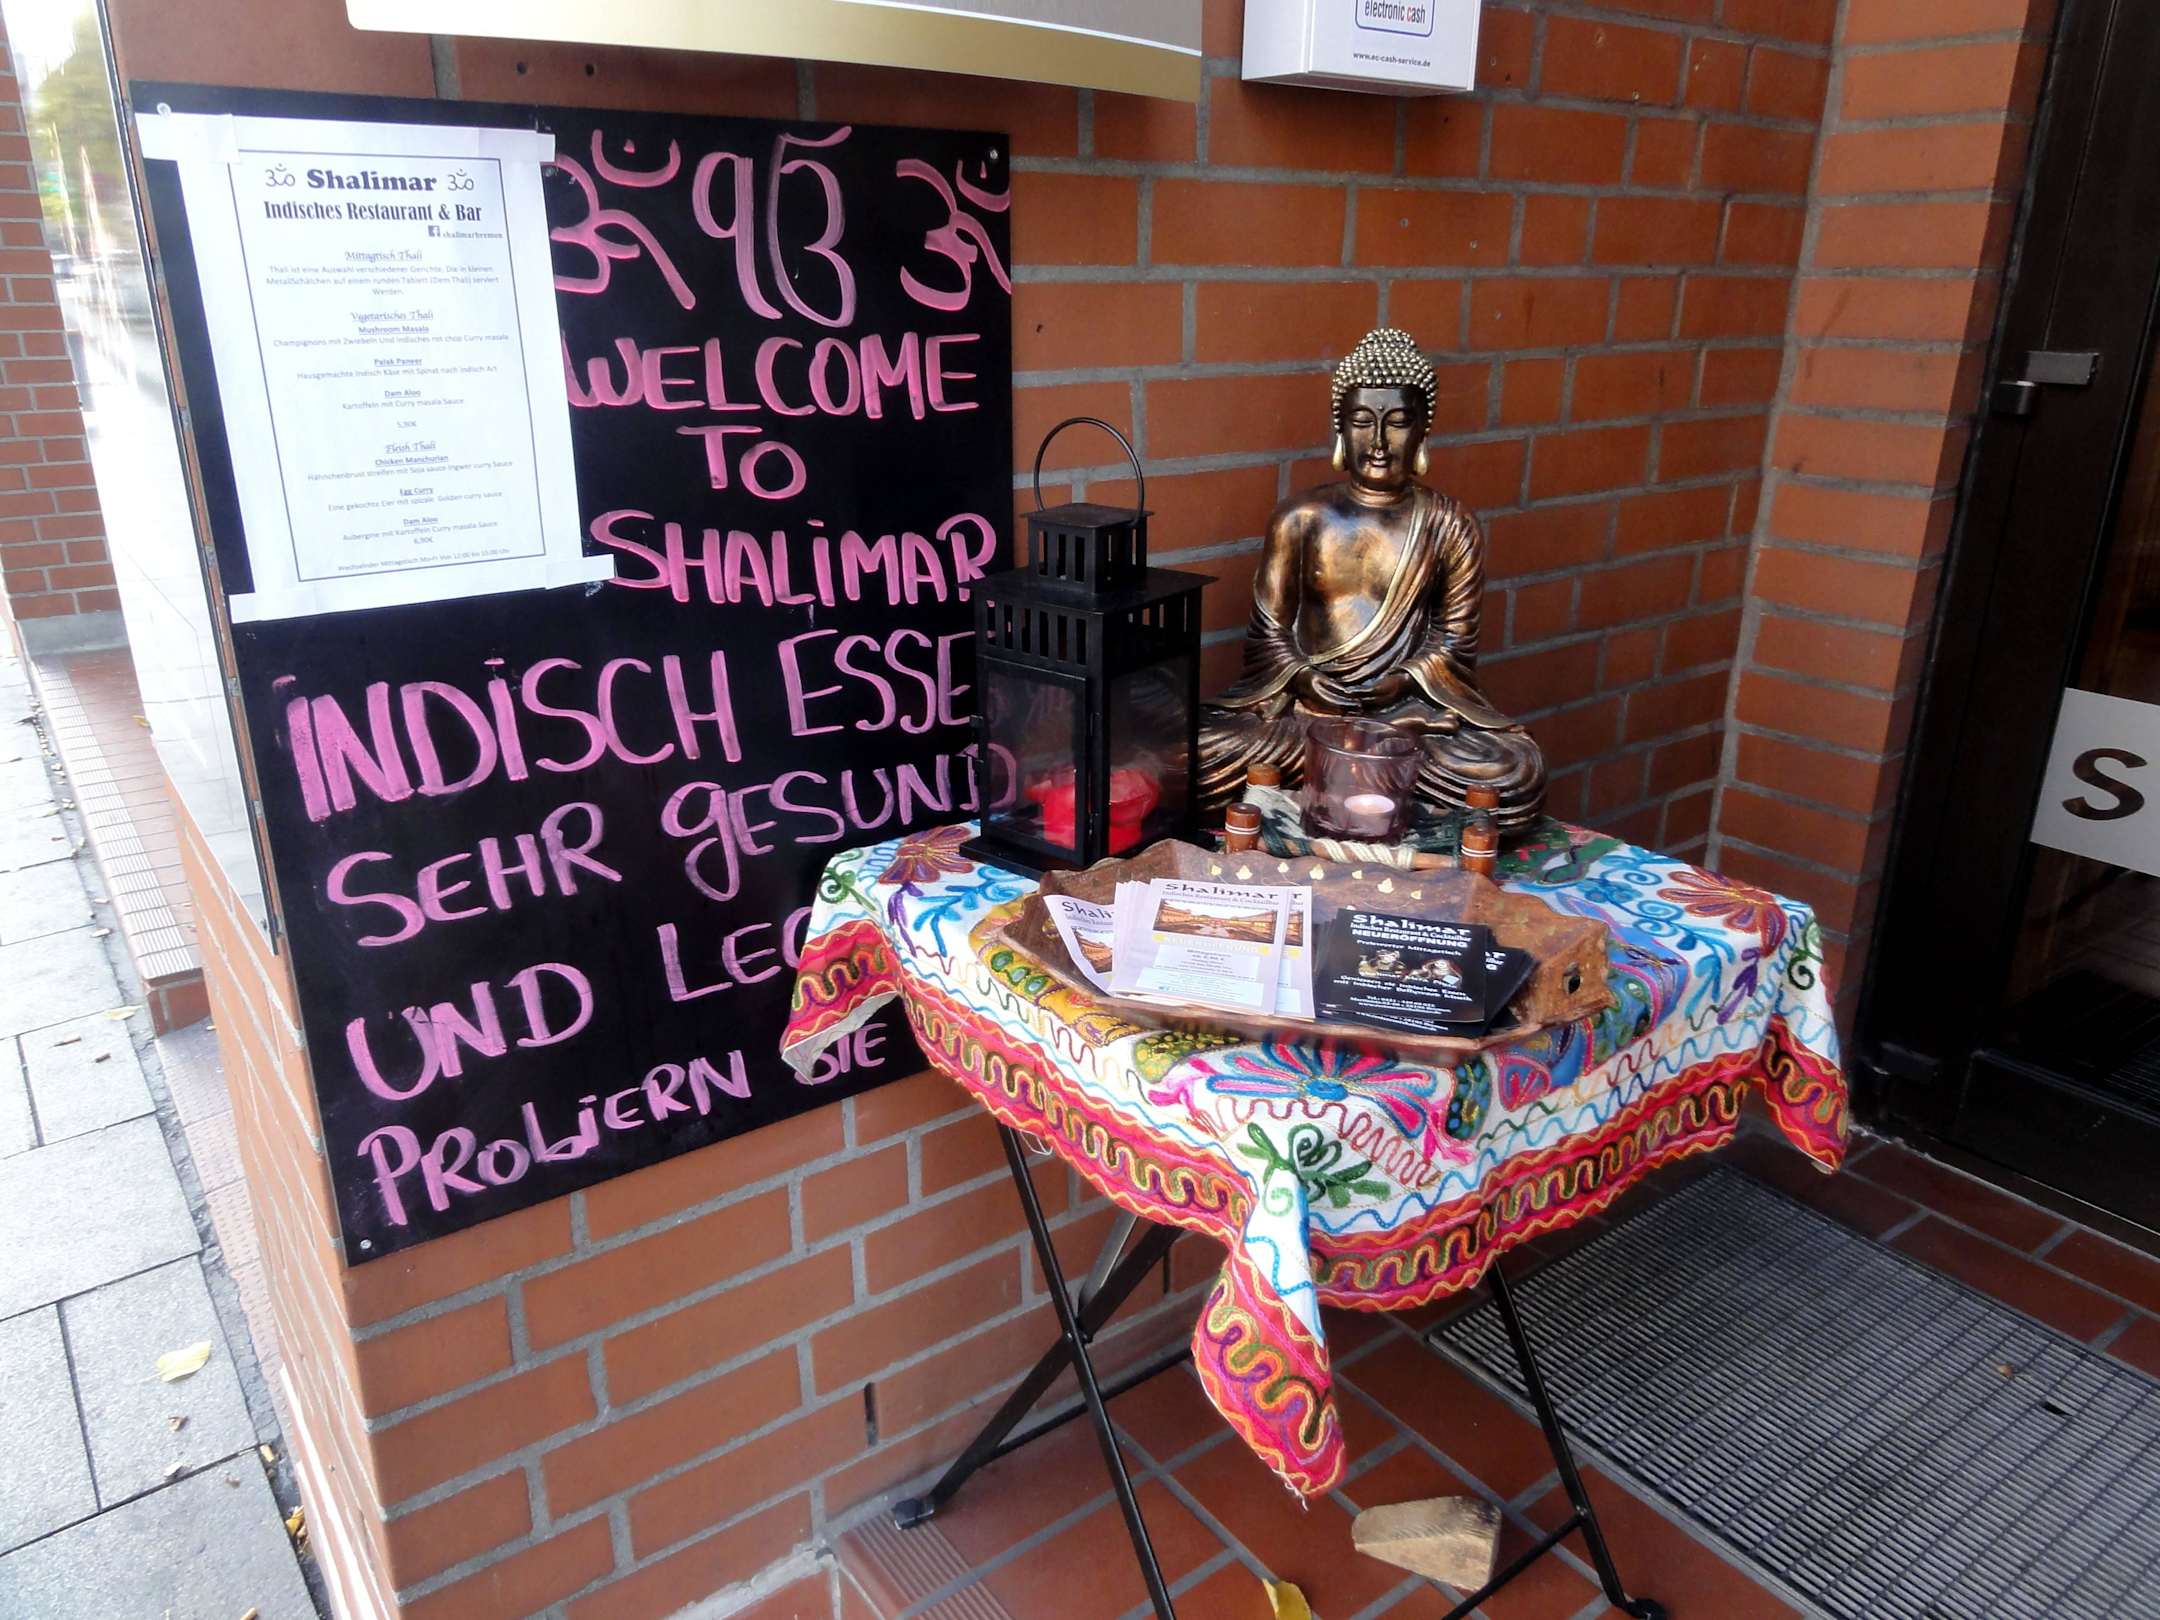 ॐ Shalimar ॐ
Indisches Restaurant & Bar
shalimarbremen
Mittagtisch Thali
Thali ist eine Auswahl verschiedener Gerichte. Die in kleinen
Metallschälchen auf einem runden Tablett (Dem Thali) serviert
Werden.
Vegetarisches Thali
Mushroom Masala
Champignons mit Zwiebeln Und Indisches rot chop Curry masala
Palak Paneer
Hausgemachte Indisch Käse mit Spinat nach indisch Art
Dam Aloo
Kartoffeln mit Curry masala Sauce
5,90€
Fleish Thali
Chicken Manchurian
Hähnchenbrust streifen mit Soja sauce Ingwer curry Sauce
Egg Curry
Eine gekochte Eier mit spizale Golden curry sauce
Dam Aloo
Aubergine mit Kartoffeln Curry masala Sauce
6,90€
Wechselnder Mittagstisch Mo-Fr Von 12:00 bis 15:00 Uhr
ॐ ੴ ॐ
WELCOME
TO
SHALIMAR
INDISCH ESSE
SEHR GESUND
UND LEC
PROBIERN SIE
electronic cash
www.ec-cash-service.de
Shalimar
Indisches Restaurant & Cocktailbar
NEUERÖFFNUNG
Shalimar
Indisches Restaurant & Cocktailbar
NEUERÖFFNUNG
Preiswerter Mittagstisch
Genießen sie indisches Essen
mit indischer Bollywood Musik
S